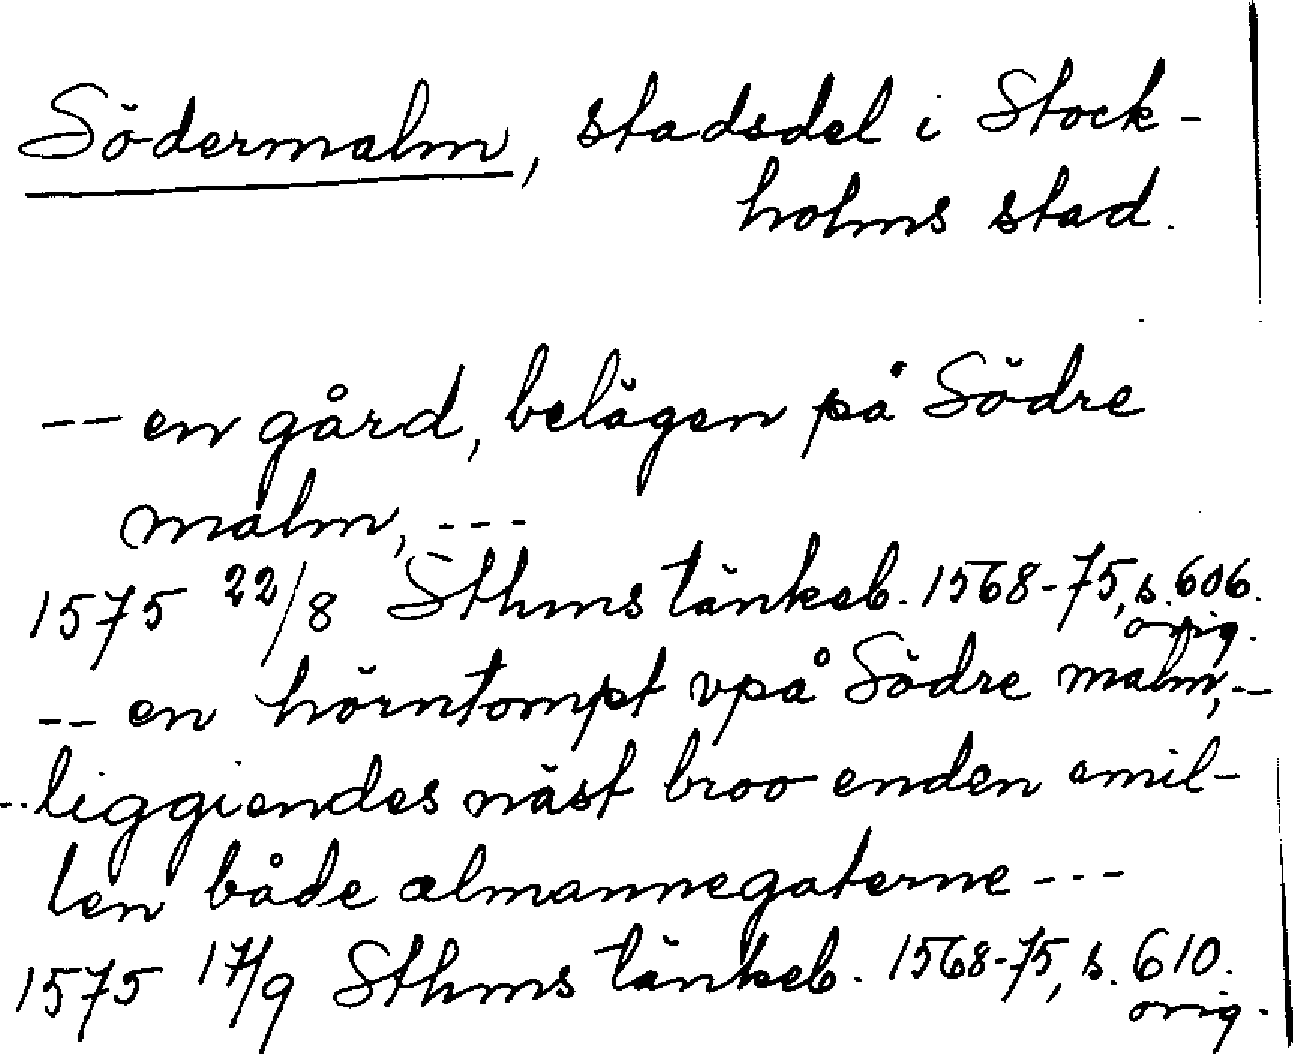 Södermalm, stadsdel i Stock-
holms stad.
-- en gård, belägen på Södre
malm, ---
1575 22/8 Sthms tänkeb. 1568-75, s. 606.
orig.
-- en hörntompt vpå Södre malm, --
-- liggiendes näst broo enden emil-
len både almannegaterne ---
1575 17/9 Sthms tänkeb. 1568-75, s. 610.
orig.